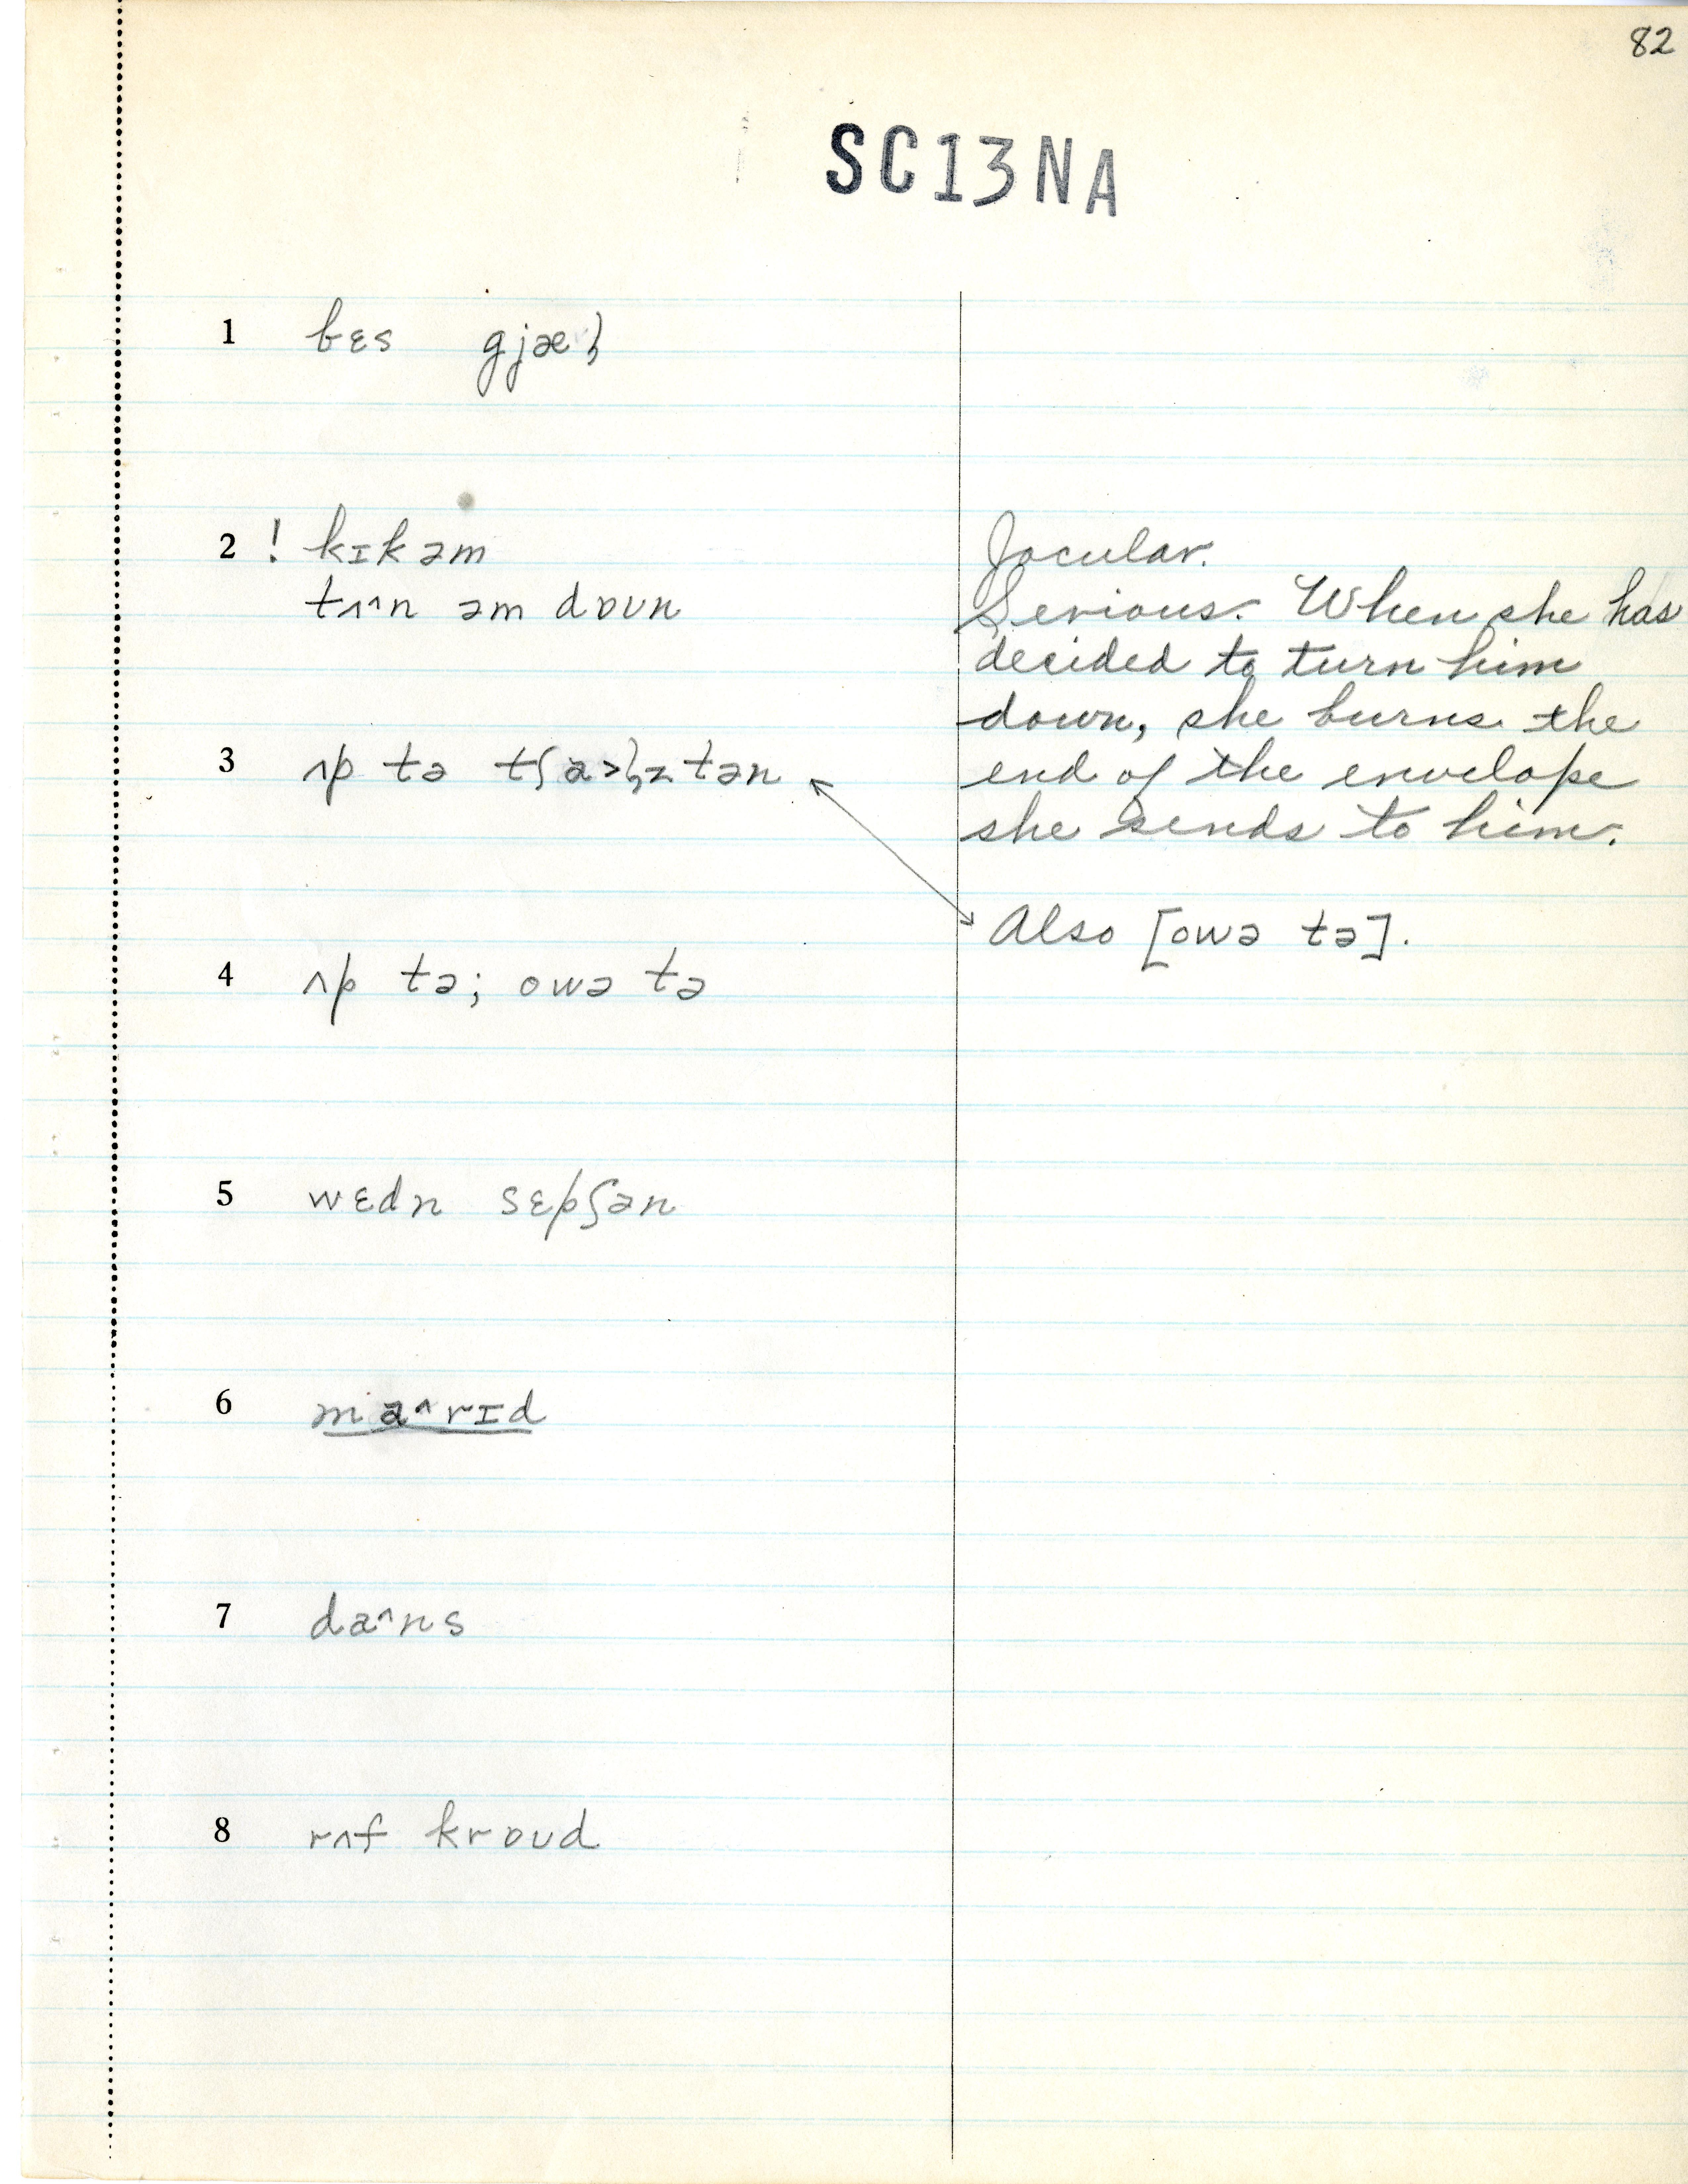 82
SC13NA
1 bɛs gjæɫ
2 ! kɪk əm
tʌ^n əm dɒʊn
Jocular.
Serious. When she has
decided to turn him
down, she burns the
end of the envelope
she sends to him.
3 ʌp tə tʃa>ɫztən
Also [owə tə].
4 ʌp tə; owə tə
5 wɛdn sɛpʃən
6 ma^rɪd
7 da^ns
8 rʌf krɒʊd